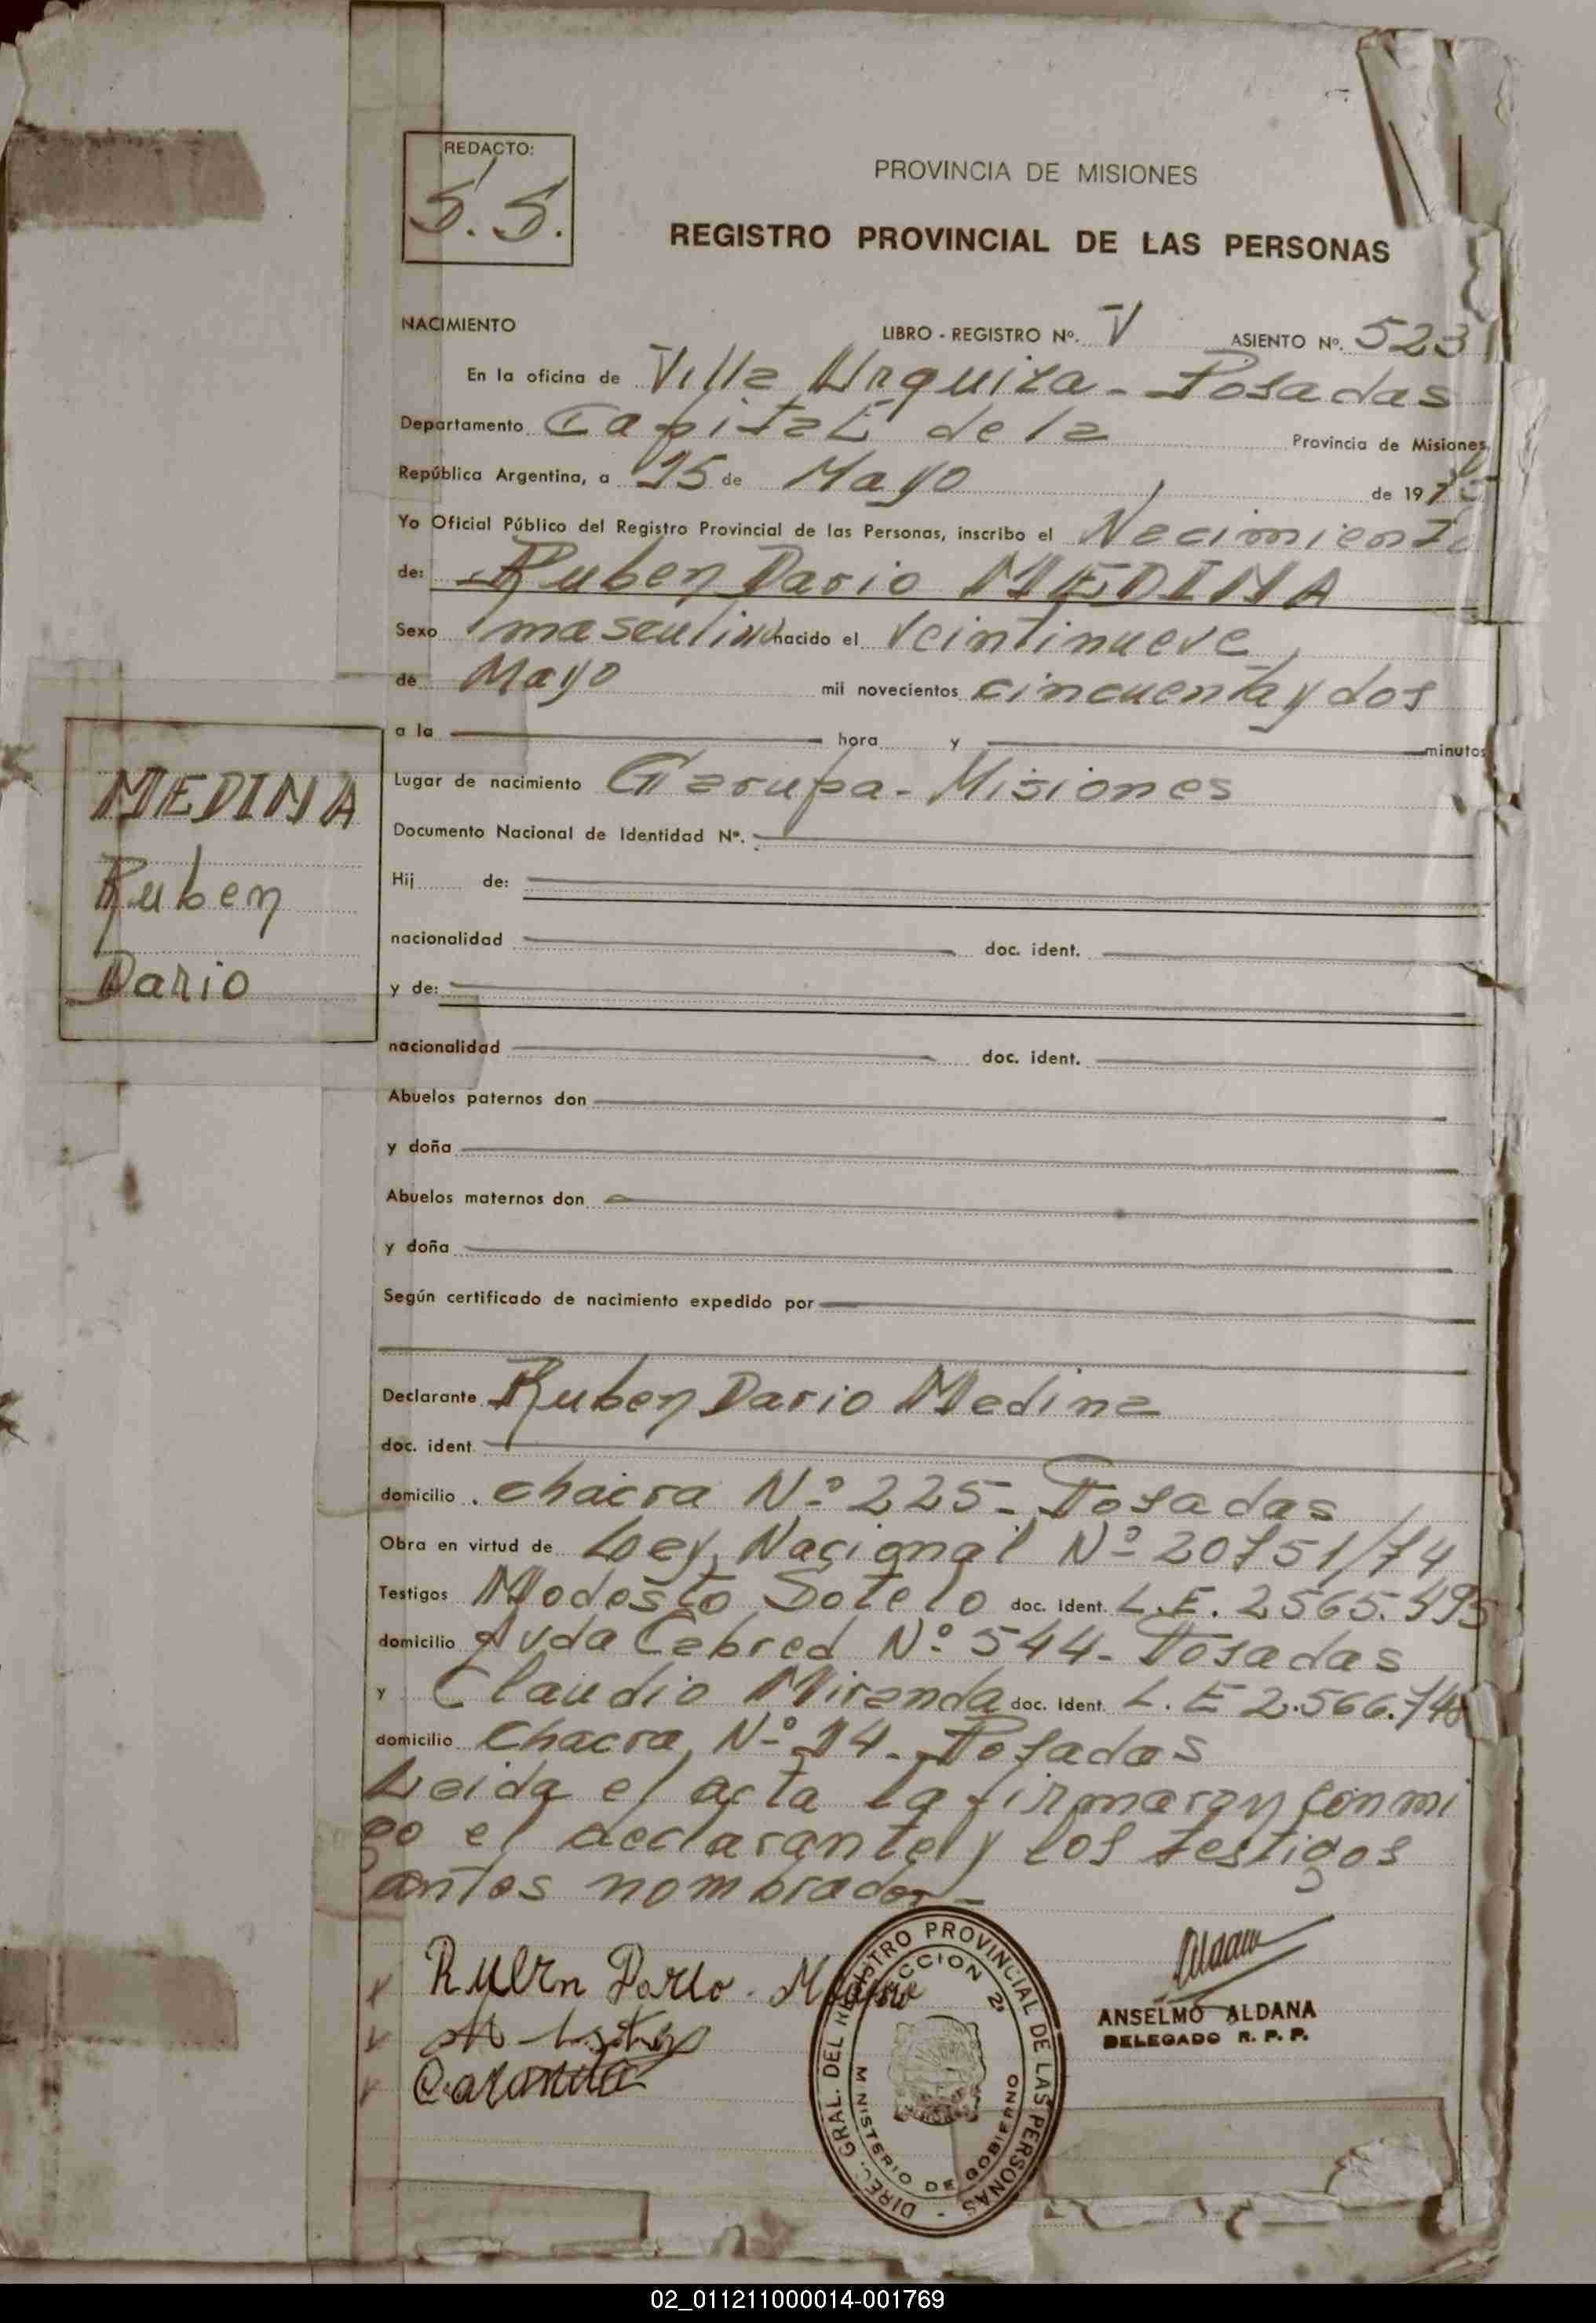 REDACTO:
S.S.
PROVINCIA DE MISIONES
REGISTRO PROVINCIAL DE LAS PERSONAS
NACIMIENTO LIBRO - REGISTRO Nº. V ASIENTO Nº. 5231
En la oficina de Villa Urquiza - Posadas
Departamento Capital de la Provincia de Misiones,
República Argentina, a 15 de Mayo de 197
Yo Oficial Público del Registro Provincial de las Personas, inscribo el Nacimiento
de: Ruben Dario MEDINA
Sexo masculino nacido el veintinueve
de Mayo mil novecientos cincuenta y dos
a la hora y minutos
Lugar de nacimiento Garupa - Misiones
Documento Nacional de Identidad Nº.
Hij de:
nacionalidad doc. ident.
y de:
nacionalidad doc. ident.
Abuelos paternos don
y doña
Abuelos maternos don
y doña
Según certificado de nacimiento expedido por
MEDINA
Ruben
Dario
Declarante Ruben Dario Medina
doc. ident.
domicilio . chacra Nº 225 - Posadas
Obra en virtud de Ley Nacional Nº 20751/74
Testigos Modesto Sotelo doc. Ident. L.E. 2565.495
domicilio Avda Cabred Nº 544 - Posadas
y Claudio Miranda doc. Ident. L.E 2.566.748
domicilio Chacra Nº 14 - Posadas
Leida el acta la firmaron conmi
go el declarante y los testigos
antes nombrados -
Ruben Dario. Medina
ANSELMO ALDANA
DELEGADO R. P. P.
DIREC. GRAL. DEL REGISTRO PROVINCIAL DE LAS PERSONAS -
SECCION 2ª
MINISTERIO DE GOBIERNO
02_011211000014-001769